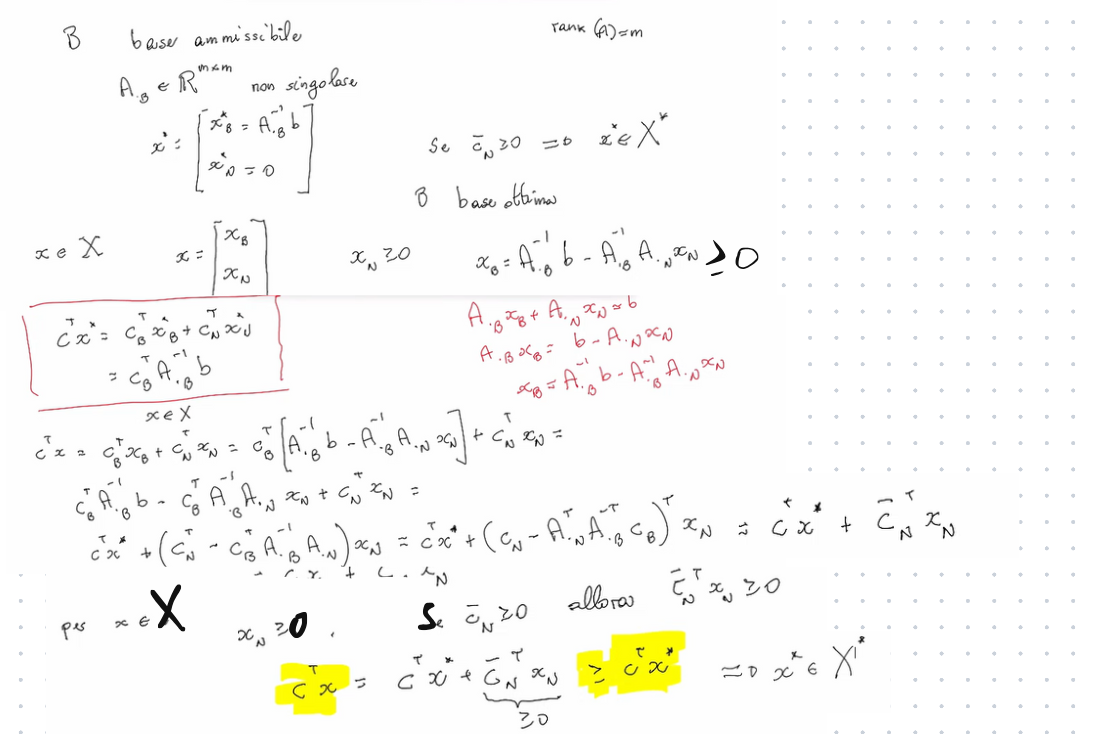 B base ammissibile rank (A)=m
A.B ∈ ℝ^{m×m} non singolare
x* = [ x*_B = A.B^{-1} b
x*_N = 0 ]
Se c̄_N ≥ 0 => x* ∈ X*
B base ottima
x ∈ X x = [ x_B
x_N ] x_N ≥ 0 x_B = A.B^{-1} b - A.B^{-1} A.N x_N ≥ 0
c^T x* = c_B^T x*_B + c_N^T x*_N
= c_B^T A.B^{-1} b
A.B x_B + A.N x_N = b
A.B x_B = b - A.N x_N
x_B = A.B^{-1} b - A.B^{-1} A.N x_N
x ∈ X
c^T x = c_B^T x_B + c_N^T x_N = c_B^T [ A.B^{-1} b - A.B^{-1} A.N x_N ] + c_N^T x_N =
c_B^T A.B^{-1} b - c_B^T A.B^{-1} A.N x_N + c_N^T x_N =
c^T x* + ( c_N^T - c_B^T A.B^{-1} A.N ) x_N = c^T x* + ( c_N - A.N^T A.B^{-T} c_B )^T x_N = c^T x* + c̄_N^T x_N
per x ∈ X x_N ≥ 0 . Se c̄_N ≥ 0 allora c̄_N^T x_N ≥ 0
c^T x = c^T x* + c̄_N^T x_N ≥ c^T x* => x* ∈ X*
≥ 0